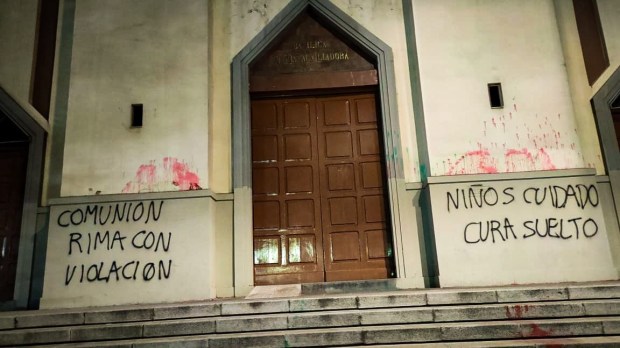 COMUNIÓN
RIMA CON
VIOLACIÓN
NIÑOS CUIDADO
CURA SUELTO